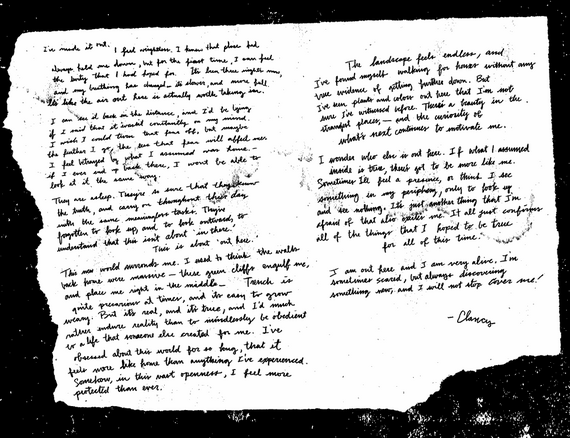 I've made it out. I feel weightless. I knew that place had
always held me down, but for the first time, I can feel
the unity that I had hoped for. It's been three nights now,
and my breathing has changed - it's slower, and more full.
It's like the air out here is actually worth taking in.
I can see it back in the distance, and I'd be lying
if I said that it wasn't constantly on my mind.
I wish I could turn that fear off, but maybe
the further I go, the less that fear will affect me.
I feel betrayed by what I assumed was home -
if I ever end up back there, I won't be able to
look at it the same way.
They are asleep. They're so sure that they know
the truth, and carry on throughout their day
with the same meaningless tasks. They've
forgotten to look up, and to look outward, to
understand that this isn't about 'in there.'
This is about 'out here.'
This new world surrounds me. I used to think the walls
back home were massive - these green cliffs engulf me,
and place me right in the middle - Trench is
quite precarious at times, and it's easy to grow
weary. But it's real, and it's true, and I'd much
rather endure reality than to mindlessly be obedient
to a life that someone else created for me. I've
obsessed about this world for so long, that it
feels more like home than anything I've experienced.
Somehow, in this vast openness, I feel more
protected than ever.
The landscape feels endless, and
I've found myself walking for hours without any
true evidence of getting further down. But
I've seen plants and colors out here that I'm not
sure I've witnessed before. There's a beauty in the
strangest places, - and the curiosity of
what's next continues to motivate me.
I wonder who else is out here. If what I assumed
inside is true, there's got to be more like me.
Sometimes I'll feel a presence, or think I see
something in my periphery, only to look up
and see nothing. It's just another thing that I'm
afraid of that also excites me. It all just confirms
all of the things that I hoped to be true
for all of this time.
I am out here and I am very alive. I'm
sometimes scared, but always discovering
something new, and I will not stop
- Clancy